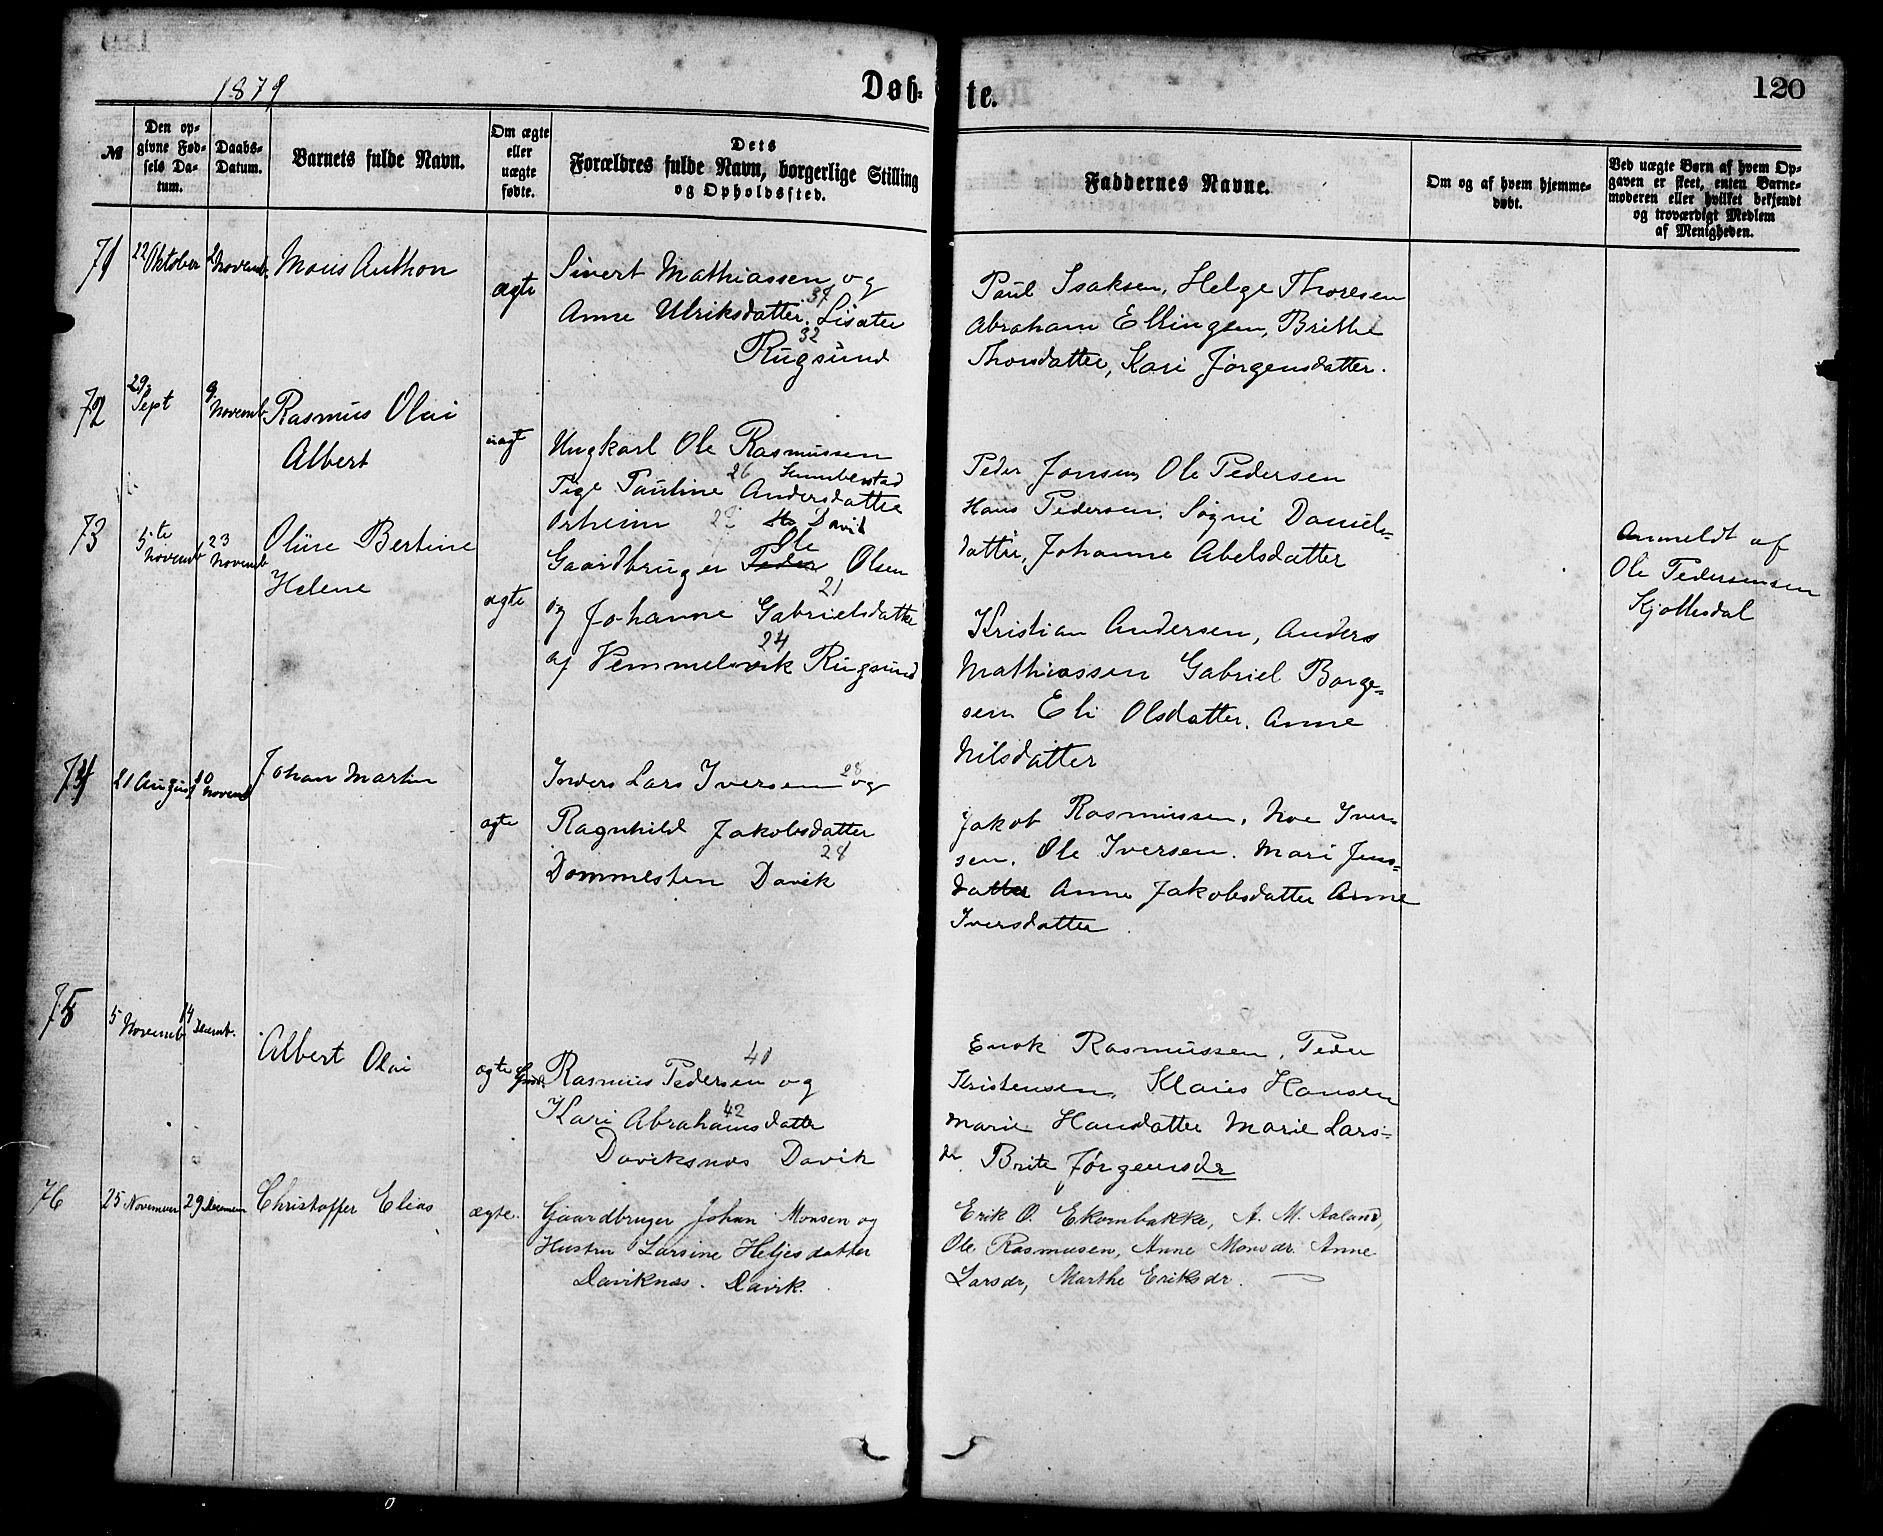 1879
Døb-
te.
120
№
Den opgivne Fødsels Datum.
Daabs-Datum.
Barnets fulde Navn.
Om ægte eller uægte fødte.
Dets Forældres fulde Navn, borgerlige Stilling og Opholdssted.
Faddernes Navne.
Om og af hvem hjemmedøbt.
Ved uægte Børn af hvem Opgaven er skeet, enten Barnemoderen eller hvilket bekjendt og troværdigt Medlem af Menigheden.
71
22 Oktober
2 Novemb.
Mons Anthon
ægte
Sivert Mathiassen og
37
Anne Ulriksdatter. Lisæter
32
Rugsund
Paul Isaksen, Helge Thoresen
Abraham Ellingsen, Brithe
Thorsdatter, Kari Jørgensdatter.
72
29. Sept
9. Novemb.
Rasmus Olai
Albert
uægt
Ungkarl Ole Rasmussen
26
Pige Pauline Andersdatter
Orheim 28 Davik
Peder Jonsen, Ole Pedersen
Hans Pedersen, Søgni Daniels-
datter, Johanne Abelsdatter
Anmeldt af
Ole Pedersensen
Kjøllesdal
73
5te Novemb
23 Novemb
Oline Bertine
Helene
ægte
Ole
Gaardbruger Peder Olsen
21
og Johanne Gabrielsdatter
24
af Vemmelsvik Rugsund
Kristian Andersen, Anders
Mathiassen Gabriel Børge-
sen Eli Olsdatter. Anne
Nilsdatter
74
21 August
30 Novemb
Johan Martin
ægte
Inders Lars Iversen og
28
Ragnhild Jakobsdatter
28
Dommesten Davik
Jakob Rasmussen, Noe Iver-
sen. Ole Iversen. Mari Jens-
datter Anne Jakobsdatter Anne
Iversdatter
75
5 Novemb
14 Decemb.
Albert Olai
ægte
40
Rasmus Pedersen og
42
Kari Abrahamsdatter
Daviksnes Davik
Enok Rasmussen, Peder
Kristensen, Klaus Hansen
Marie Hansdatter Marie Lars-
dr. Brite Jørgensdr
76
25 November
29 Decemem
Christoffer Elias
ægte.
Gaardbruger Johan Monsen og
Hustru Larsine Heljesdatter
Daviknes. Davik.
Erik O. Ekornbakke, A. M. Aaland,
Ole Rasmusen, Anne Monsdr. Anne
Larsdr, Marthe Eriksdr.